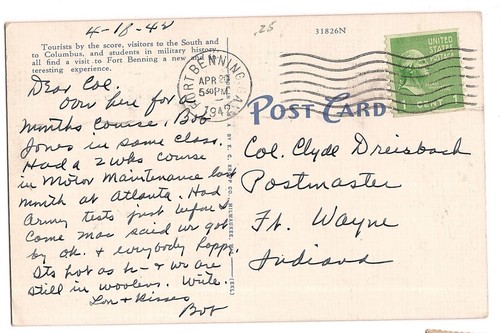 4-18-42
.25
31826N
Tourists by the score, visitors to the South and
to Columbus, and students in military history,
all find a visit to Fort Benning a new and
teresting experience.
FORT BENNING, GA.
APR 20
5 30 PM
1942
UNITED
STATES
POSTAGE
1 CENT 1
POST CARD
Dear Col.
Over here for a
months course. Bob
Jones in same class.
Had a 2 wks course
in Motor Maintenance last
month at Atlanta. Had
Army tests just before I
come Mac said we got
by ok. & everybody happy.
Its hot as h- & we are
still in woolens. Write.
Lov & Kisses
Bob
Col. Clyde Dreisbach
Postmaster
Ft. Wayne
Indiana